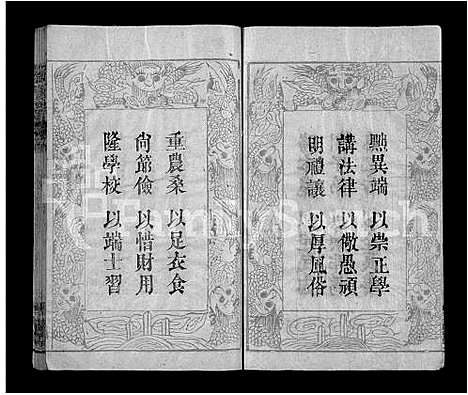 黜異端 以崇正學
講法律 以儆愚頑
明禮讓 以厚風俗
重農桑 以足衣食
尚節儉 以惜財用
隆學校 以端士習
FamilySearch